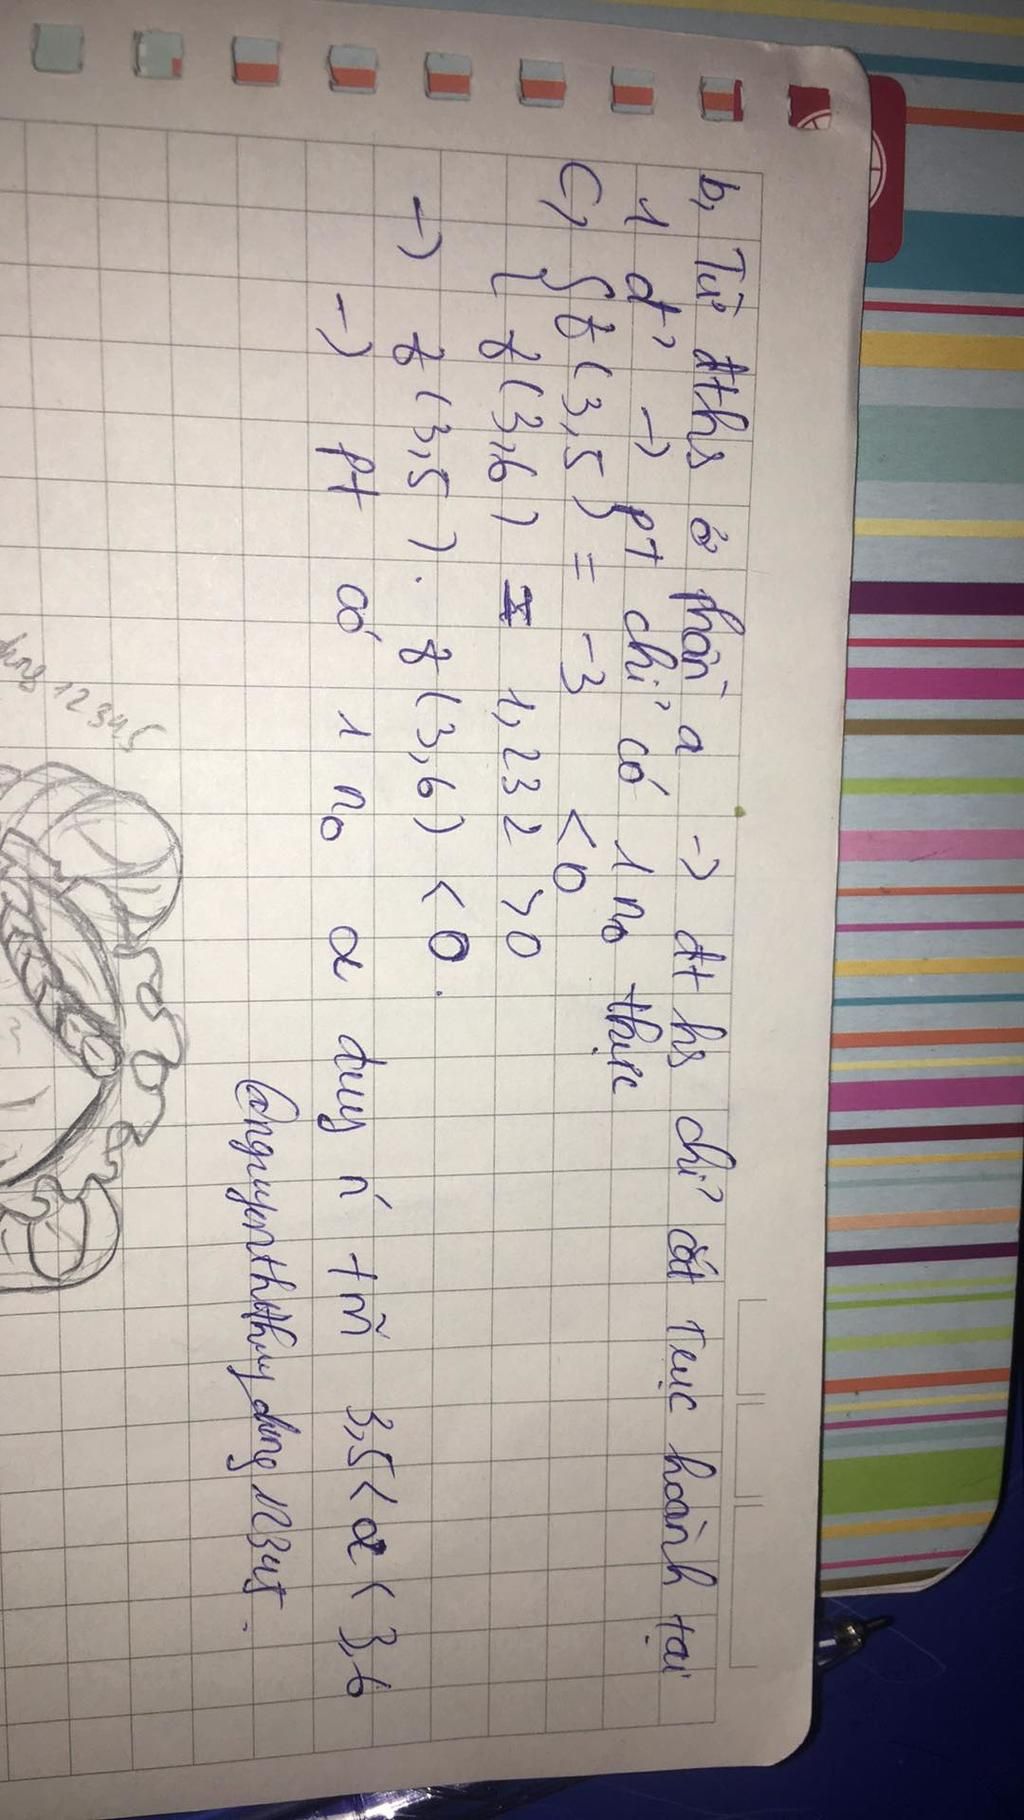 b, Từ đths ở phần a -> đt hs chỉ cắt trục hoành tại
1 đ' -> pt chỉ có 1 no thực
c, { f(3,5) = -3 < 0
{ f(3,6) = 1,232 > 0
-> f(3,5). f(3,6) < 0.
-> pt có 1 no α duy n' tm̃ 3,5 < α < 3,6
12345